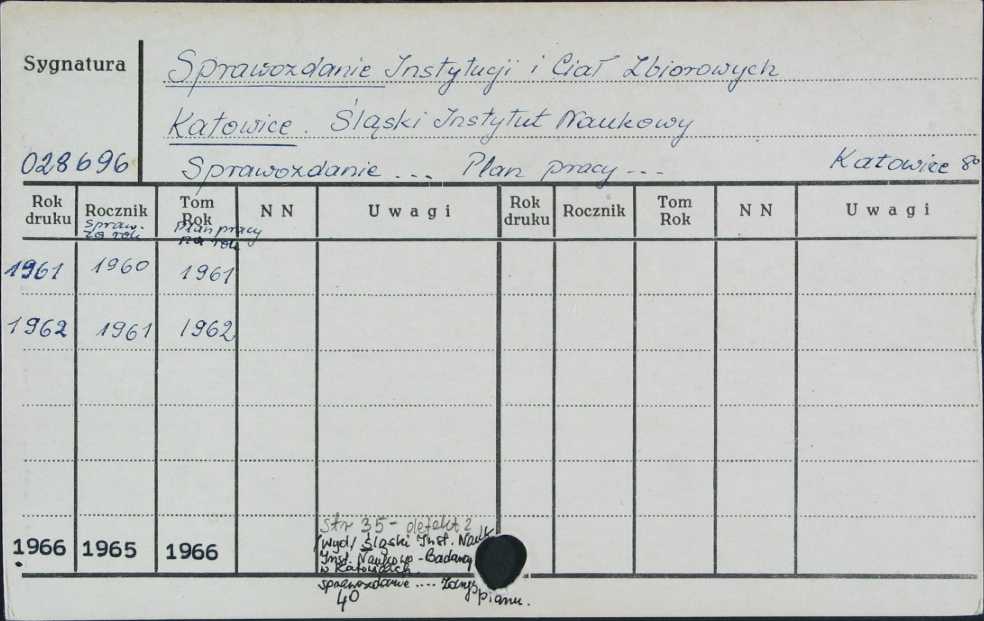 Sygnatura
Sprawozdanie Instytucji i Ciał Zbiorowych
Katowice. Śląski Instytut Naukowy
028696
Sprawozdanie ... Plan pracy ... Katowice 8°
Rok druku Rocznik Tom Rok NN Uwagi Rok druku Rocznik Tom Rok NN Uwagi
spraw. za rok Plan pracy na rok
1961 1960 1961
1962 1961 1962
Str 35 - defekt 2
1966 1965 1966
(wyd/ Śląski Inst. Nauk
Inst. Naukowo-Badawcz
w Katowicach.
sprawozdanie .... planu.
40